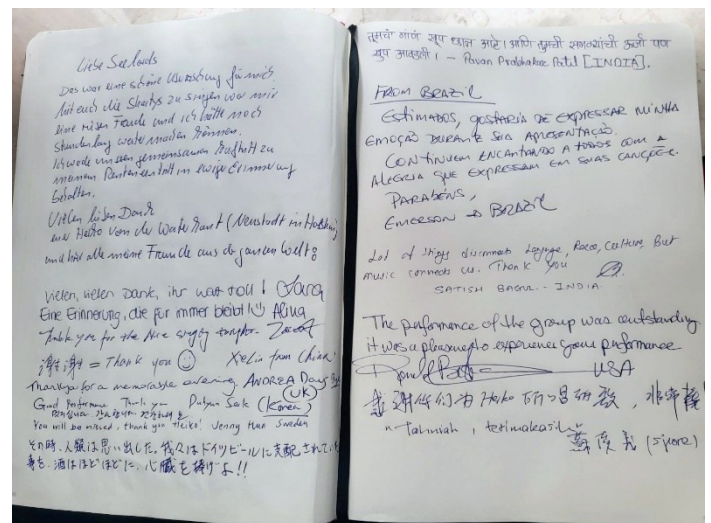 Liebe Seelords
Das war eine schöne Überraschung für mich.
Mit euch die Shantys zu singen war mir
eine riesen Freude und ich hätte noch
stundenlang weiter machen können.
Ich werde unseren gemeinsamen Auftritt zu
meinem Renteneintritt in ewige Erinnerung
behalten.
Vielen lieben Dank
euer Heiko von der Waterkant (Neustadt in Holstein)
und hier alle meine Freunde aus der ganzen Welt:
vielen, vielen Dank, ihr wart toll! Lara
Eine Erinnerung, die für immer bleibt! Alina
Thank you for the Nice singing together.
谢谢 = Thank you ☺ Xuelin from China
Thanks for a memorable evening, ANDREA Days (UK)
Good Performance Thank you (Korea)
You will be missed, thank you Heiko! Jenny Sweden
その時、人類は思い出した。我々はドイツビールに支配されていた
事を。酒はほどほどに、心臓を捧げよ!!
तुमचं गाणं खूप छान आहे। आणि तुमची सगळ्यांची ऊर्जा पण
खूप आवडली। - Pavan Prabhakar Patil [INDIA].
FROM BRAZIL
ESTIMADOS, GOSTARIA DE EXPRESSAR MINHA
EMOÇÃO DURANTE SUA APRESENTAÇÃO.
CONTINUEM ENCANTANDO A TODOS COM A
ALEGRIA QUE EXPRESSAM EM SUAS CANÇÕES.
PARABÉNS,
EMERSON → BRAZIL
Lot of things disconnects Language, Race, Culture, But
music connects us. Thank you
SATISH - INDIA.
The performance of the group was outstanding
it was a pleasure to experience your performance
USA
感謝你们为 Heiko 所唱, 非常棒!
"Tahniah, terimakasih"
蘇 (s'pore)